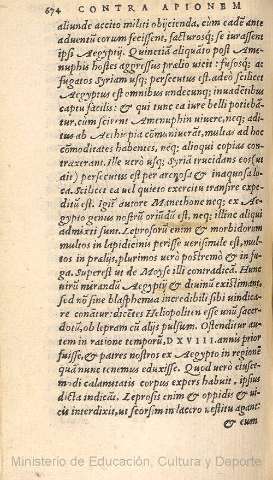 674 CONTRA APIONEM
aliunde accito militi obijcienda, cùm eadē ante
aduentū eorum fecissent, facturosq́; se iurassent
ipsi Aegyptij. Quinetiā aliquāto pòst Ame-
nuphis hostes aggressus prælio vicit: fusosq́; ac
fugatos Syriam usq; persecutus est. adeò scilicet
Aegyptus est omnibus undecunq; inuadētibus
captu facilis: & qui tunc ea iure belli potiebā-
tur, cùm scirent Amenuphin viuere, neq; adi-
tus ab Aethiopia cōmuniuerāt, multas ad hoc
cōmoditates habentes, neq; alioqui copias con-
traxerant. Ille verò usq; Syriā trucidans eos (ut
ait) persecutus est per arenosa & inaquosa lo-
ca. Scilicet ea uel quieto exercitu transire expe-
ditū est. Igit̃ autore Manethone neq; ex Ae-
gypto genus nostrū oriūdū est, neq; illinc aliqui
admixti sunt. Leprosorū enim & morbidorum
multos in lapidicinis perisse verisimile est, mul-
tos in prælijs, plurimos verò postremò & in fu-
ga. Superest ut de Moyse illi contradicā. Hunc
uirū mirandū Aegyptij & diuinū existimant,
sed nō sine blasphemia incredibili sibi uindica-
re conātur: dicētes Heliopoliten esse unū sacer-
dotū, ob lepram cū alijs pulsum. Ostenditur au-
tem in ratione temporū, DXVIII. annis prior
fuisse, & patres nostros ex Aegypto in regionē
quā nunc tenemus eduxisse. Quod verò eiusce-
m̃odi calamitatis corpus expers habuit, ipsius
dicta indicāt. Leprosis enim & oppidis & ui-
cis interdixit, ut seorsim in lacero uestitu agant:
& eum
Ministerio de Educación, Cultura y Deporte